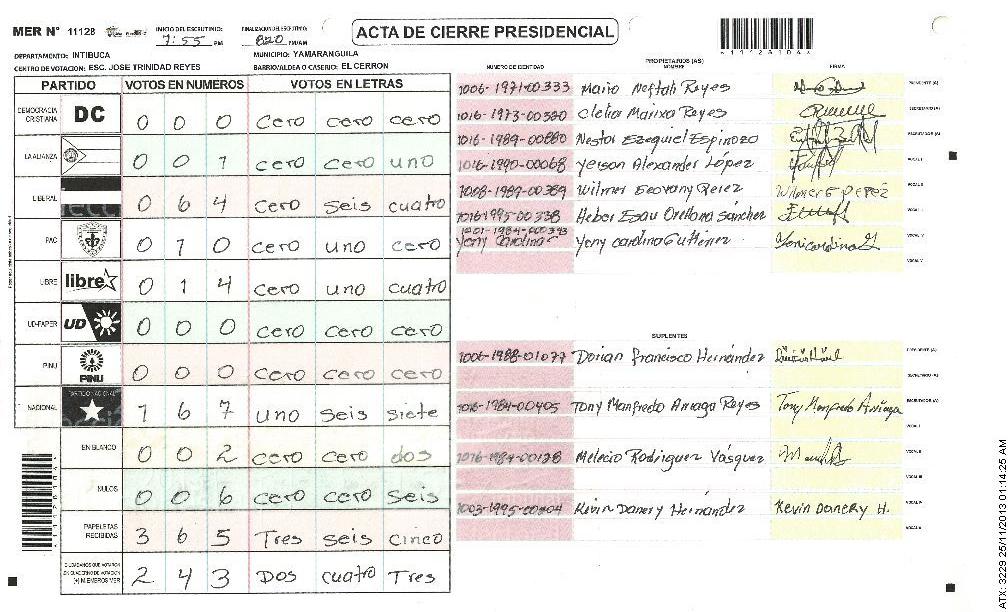 MER N° 11128
INICIO DEL ESCRUTINIO:
7:55 PM
FINALIZACION DEL ESCRUTINIO:
820 PM/AM
ACTA DE CIERRE PRESIDENCIAL
DEPARTAMENTO: INTIBUCA
MUNICIPIO: YAMARANGUILA
CENTRO DE VOTACION: ESC. JOSE TRINIDAD REYES
BARRIO/ALDEA O CASERIO: EL CERRON
PARTIDO VOTOS EN NUMEROS VOTOS EN LETRAS
DEMOCRACIA CRISTIANA DC 0 0 0 cero cero cero
LA ALIANZA 0 0 1 cero cero uno
LIBERAL 0 6 4 cero seis cuatro
PAC 0 1 0 cero uno cero
LIBRE libre 0 1 4 cero uno cuatro
UD-FAPER UD 0 0 0 cero cero cero
PINU PINU 0 0 0 cero cero cero
NACIONAL 1 6 7 uno seis siete
EN BLANCO 0 0 2 cero cero dos
NULOS 0 0 6 cero cero seis
PAPELETAS RECIBIDAS 3 6 5 Tres seis cinco
CIUDADANOS QUE VOTARON EN CUADERNO DE VOTACION (+) MIEMBROS MER 2 4 3 Dos cuatro Tres
PROPIETARIOS (AS)
NUMERO DE IDENTIDAD NOMBRE FIRMA
1006-1971-00333 Mario Neftali Reyes PRESIDENTE (A)
1016-1973-00380 Clelia Marixa Reyes SECRETARIO (A)
1016-1989-00880 Nestor Ezequiel Espinozo ESCRUTADOR (A)
1016-1990-00068 Yeison Alexander López VOCAL I
1008-1989-00389 Wilmer Geovany Perez Wilmer E Perez VOCAL II
1016-1995-00338 Heber Esau Orellana Sánchez
Yeny Carolina Yeny carolina Gutiérrez Yenicarolina G VOCAL IV
VOCAL V
SUPLENTES
1006-1988-01077 Dorian Francisco Hernández PRESIDENTE (A)
SECRETARIO (A)
1016-1984-00405 Tony Manfredo Arriaga Reyes Tony Manfredo Arriaga ESCRUTADOR (A)
VOCAL I
1016-1984-00128 Melecio Rodriguez Vásquez VOCAL II
VOCAL III
1003-1995-00204 Kevin Danery Hernández Kevin Danery H. VOCAL IV
VOCAL V
ATX: 3229 25/11/2013 01:14:25 AM